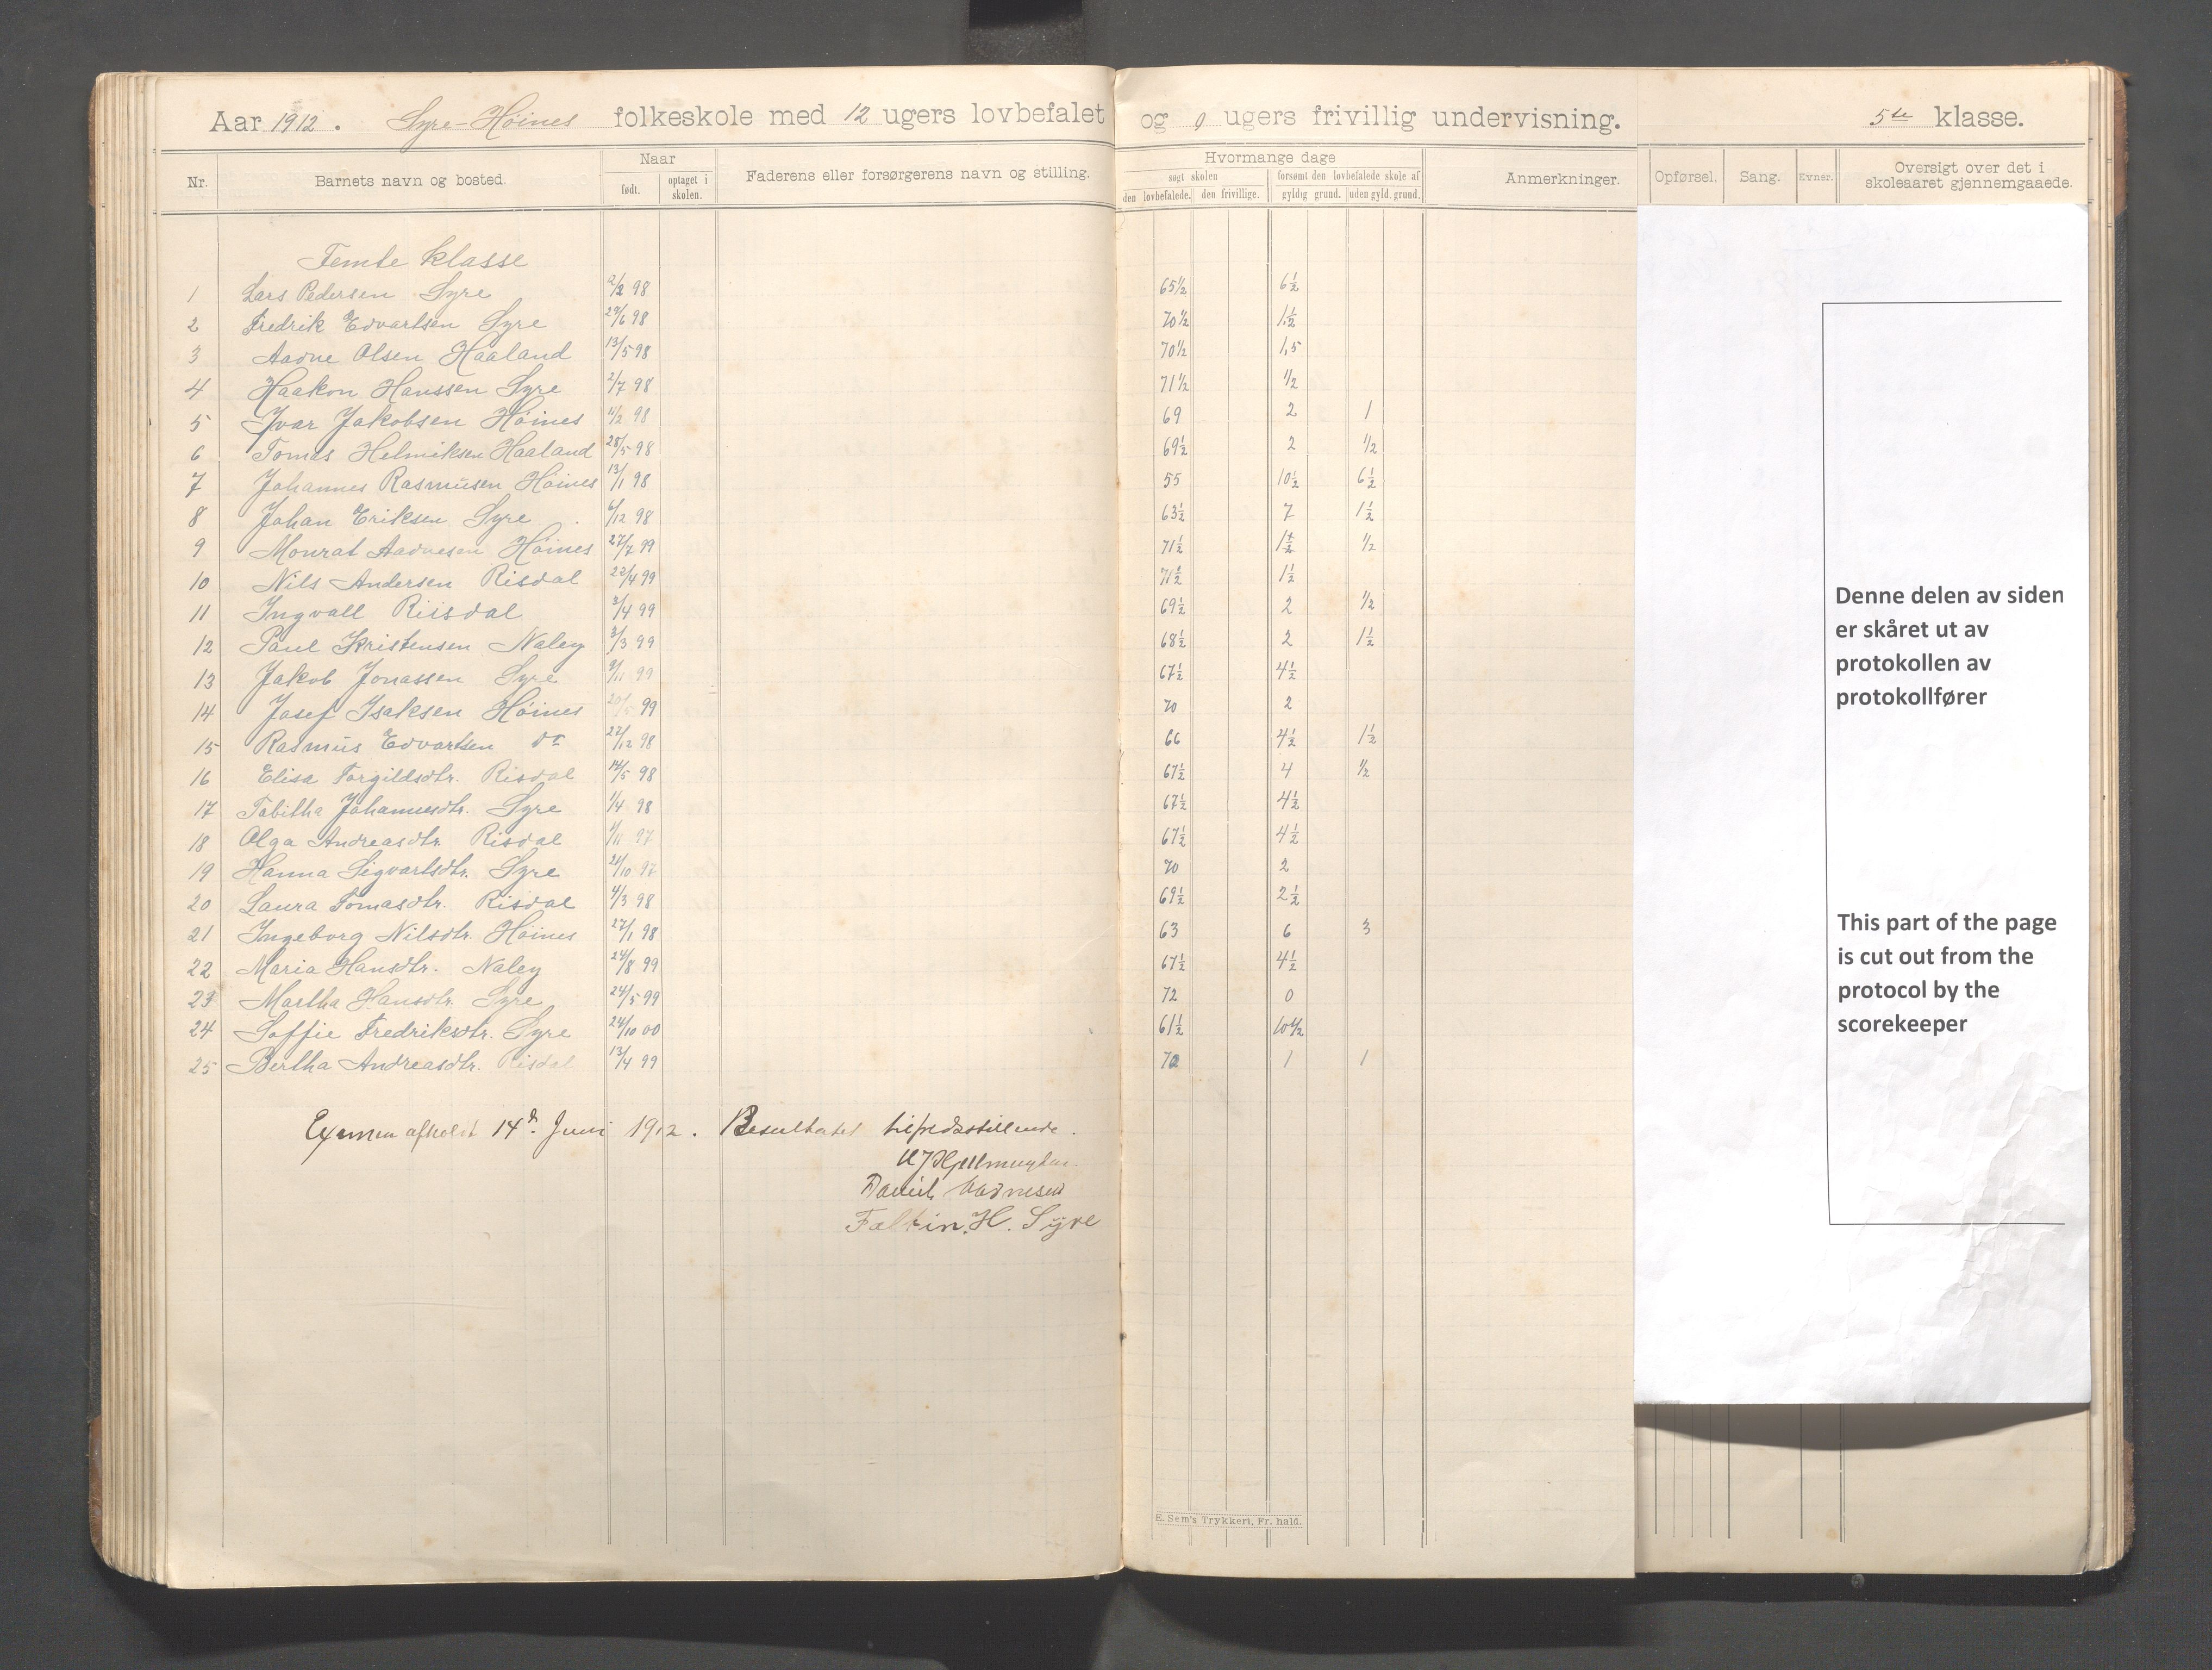 Aar 1912. Syre-Höines folkeskole med 12 ugers lovbefalet og 0 ugers frivillig undervisning. 5te klasse.
Nr. Barnets navn og bosted. Naar født. optaget i skolen. Faderens eller forsørgerens navn og stilling. Hvormange dage søgt skolen den lovbefalede. den frivillige. forsømt den lovbefalede skole af gyldig grund. uden gyld. grund. Anmerkninger. Opførsel. Sang. Evner. Oversigt over det i skoleaaret gjennemgaaede.
Femte klasse
1 Lars Pedersen Syre 2/2 98 65½ 6½
2 Fredrik Edvartsen Syre 29/6 98 70½ 1½
3 Aadne Olsen Haaland 13/5 98 70½ 1,5
4 Haakon Hanssen Syre 2/7 98 71½ ½
5 Ivar Jakobsen Höines 11/2 98 69 2 1
6 Tomas Helmiksen Haaland 28/5 98 69½ 2 ½
7 Johannes Rasmusen Höines 13/1 98 55 10½ 6½
8 Johan Eriksen Syre 6/12 98 63½ 7 1½
9 Monrat Aadnesen Höines 27/7 99 71½ 1½ ½
10 Nils Andersen Risdal 22/4 99 71½ 1½
11 Ingvall Riisdal 3/4 99 69½ 2 ½
12 Paul Kristensen Naley 3/3 99 68½ 2 1½
13 Jakob Jonassen Syre 9/11 99 67½ 4½
14 Josef Isaksen Höines 99 70 2
15 Rasmus Edvartsen do 22/12 98 66 4½ 1½
16 Elisa Torgildsdtr. Risdal 14/5 98 67½ 4 ½
17 Tabitha Johannesdtr. Syre 1/4 98 67½ 4½
18 Olga Andreasdtr. Risdal 9/11 97 67½ 4½
19 Hanna Sigvartsdtr. Syre 21/10 97 70 2
20 Laura Tomasdtr. Risdal 4/3 98 69½ 2½
21 Ingeborg Nilsdtr. Höines 27/1 98 63 6 3
22 Maria Hansdtr. Naley 24/8 99 67½ 4½
23 Martha Hansdtr. Syre 24/5 99 72 0
24 Soffie Fredriksdtr. Syre 24/10 00 61½ 10½
25 Bertha Andreasdtr. Risdal 13/4 99 70 1 1
Examen afholdt 14d. Juni 1912. Resultatet tilfredsstillende.
Daniel Aadnesen
Faltin. H. Syre
E. Sem's Trykkeri, Fr. hald.
Denne delen av siden
er skåret ut av
protokollen av
protokollfører
This part of the page
is cut out from the
protocol by the
scorekeeper